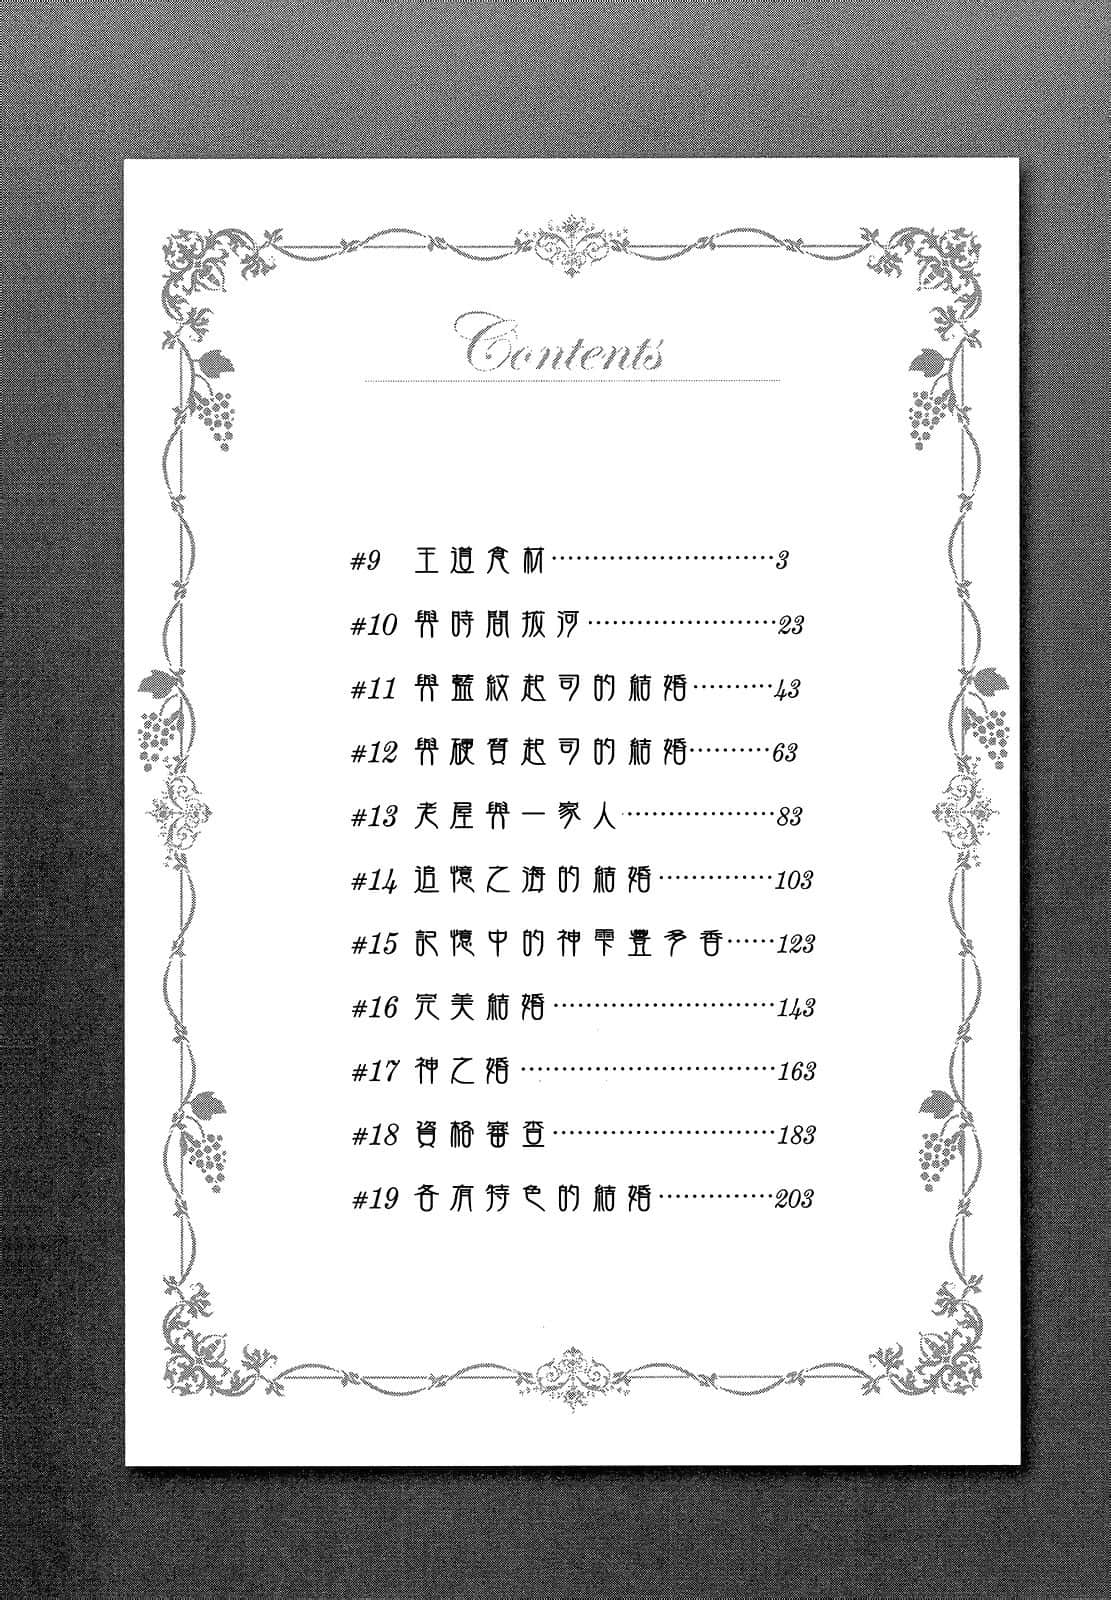 Contents
#9 王道食材………………………3
#10 與時間拔河……………………23
#11 與藍紋起司的結婚…………43
#12 與硬質起司的結婚…………63
#13 老屋與一家人………………83
#14 追憶之海的結婚……………103
#15 記憶中的神雫豐多香……123
#16 完美結婚………………………143
#17 神之婚…………………………163
#18 資格審查………………………183
#19 各有特色的結婚……………203